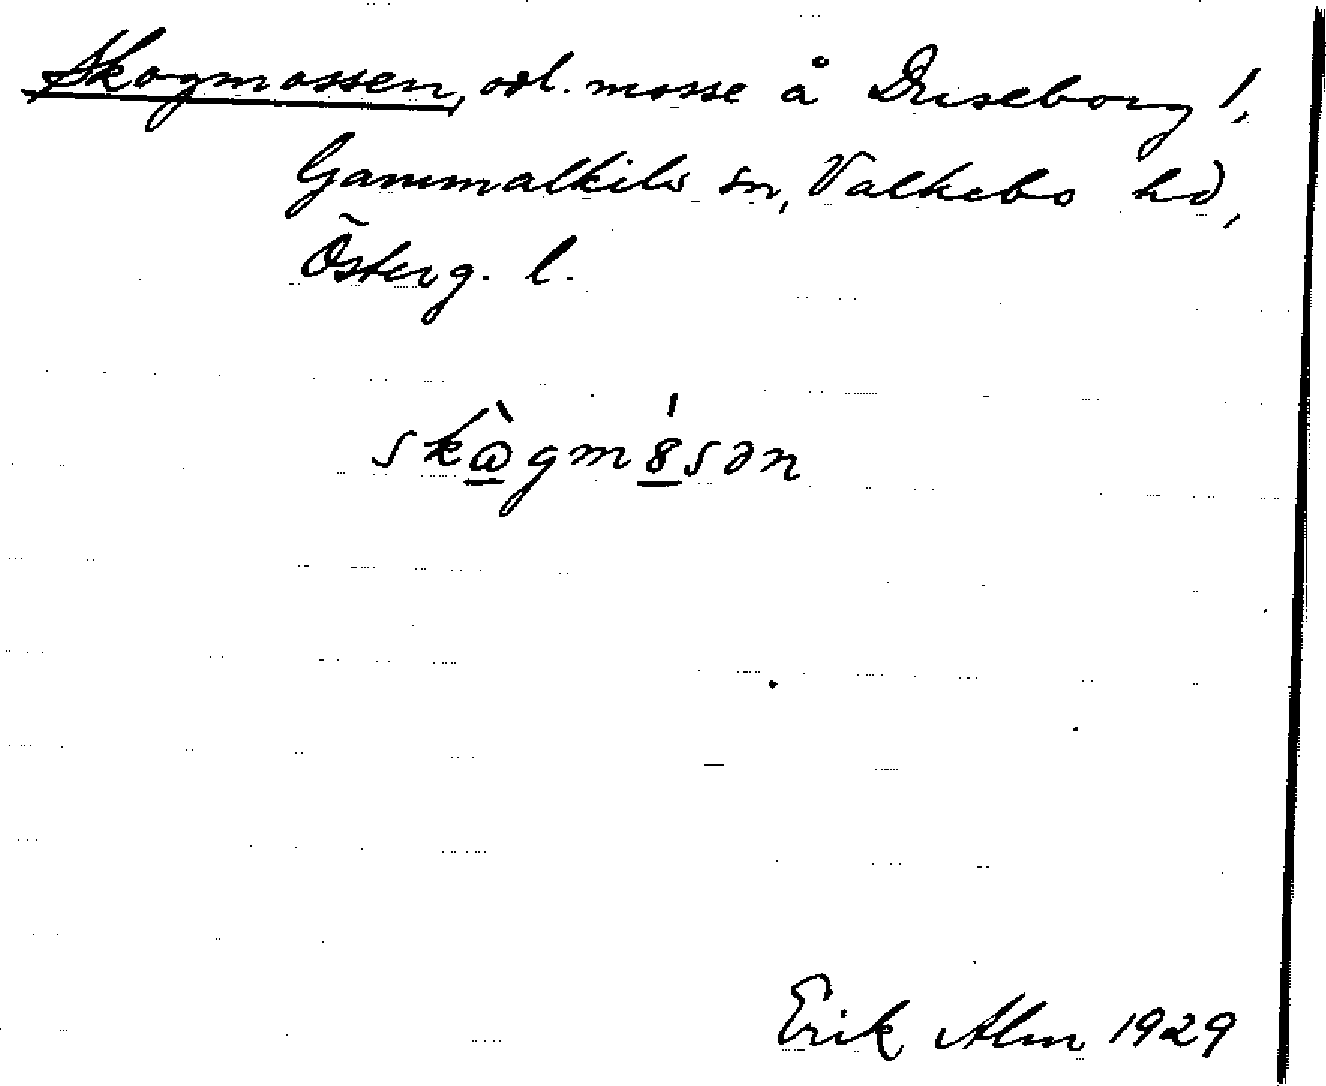 Skogmossen, odl. mosse å Duseborg 1,
Gammalkils sn, Valkebo hd,
Österg. l.
skⱥ̀gmȣ́sən
Erik Alm 1929